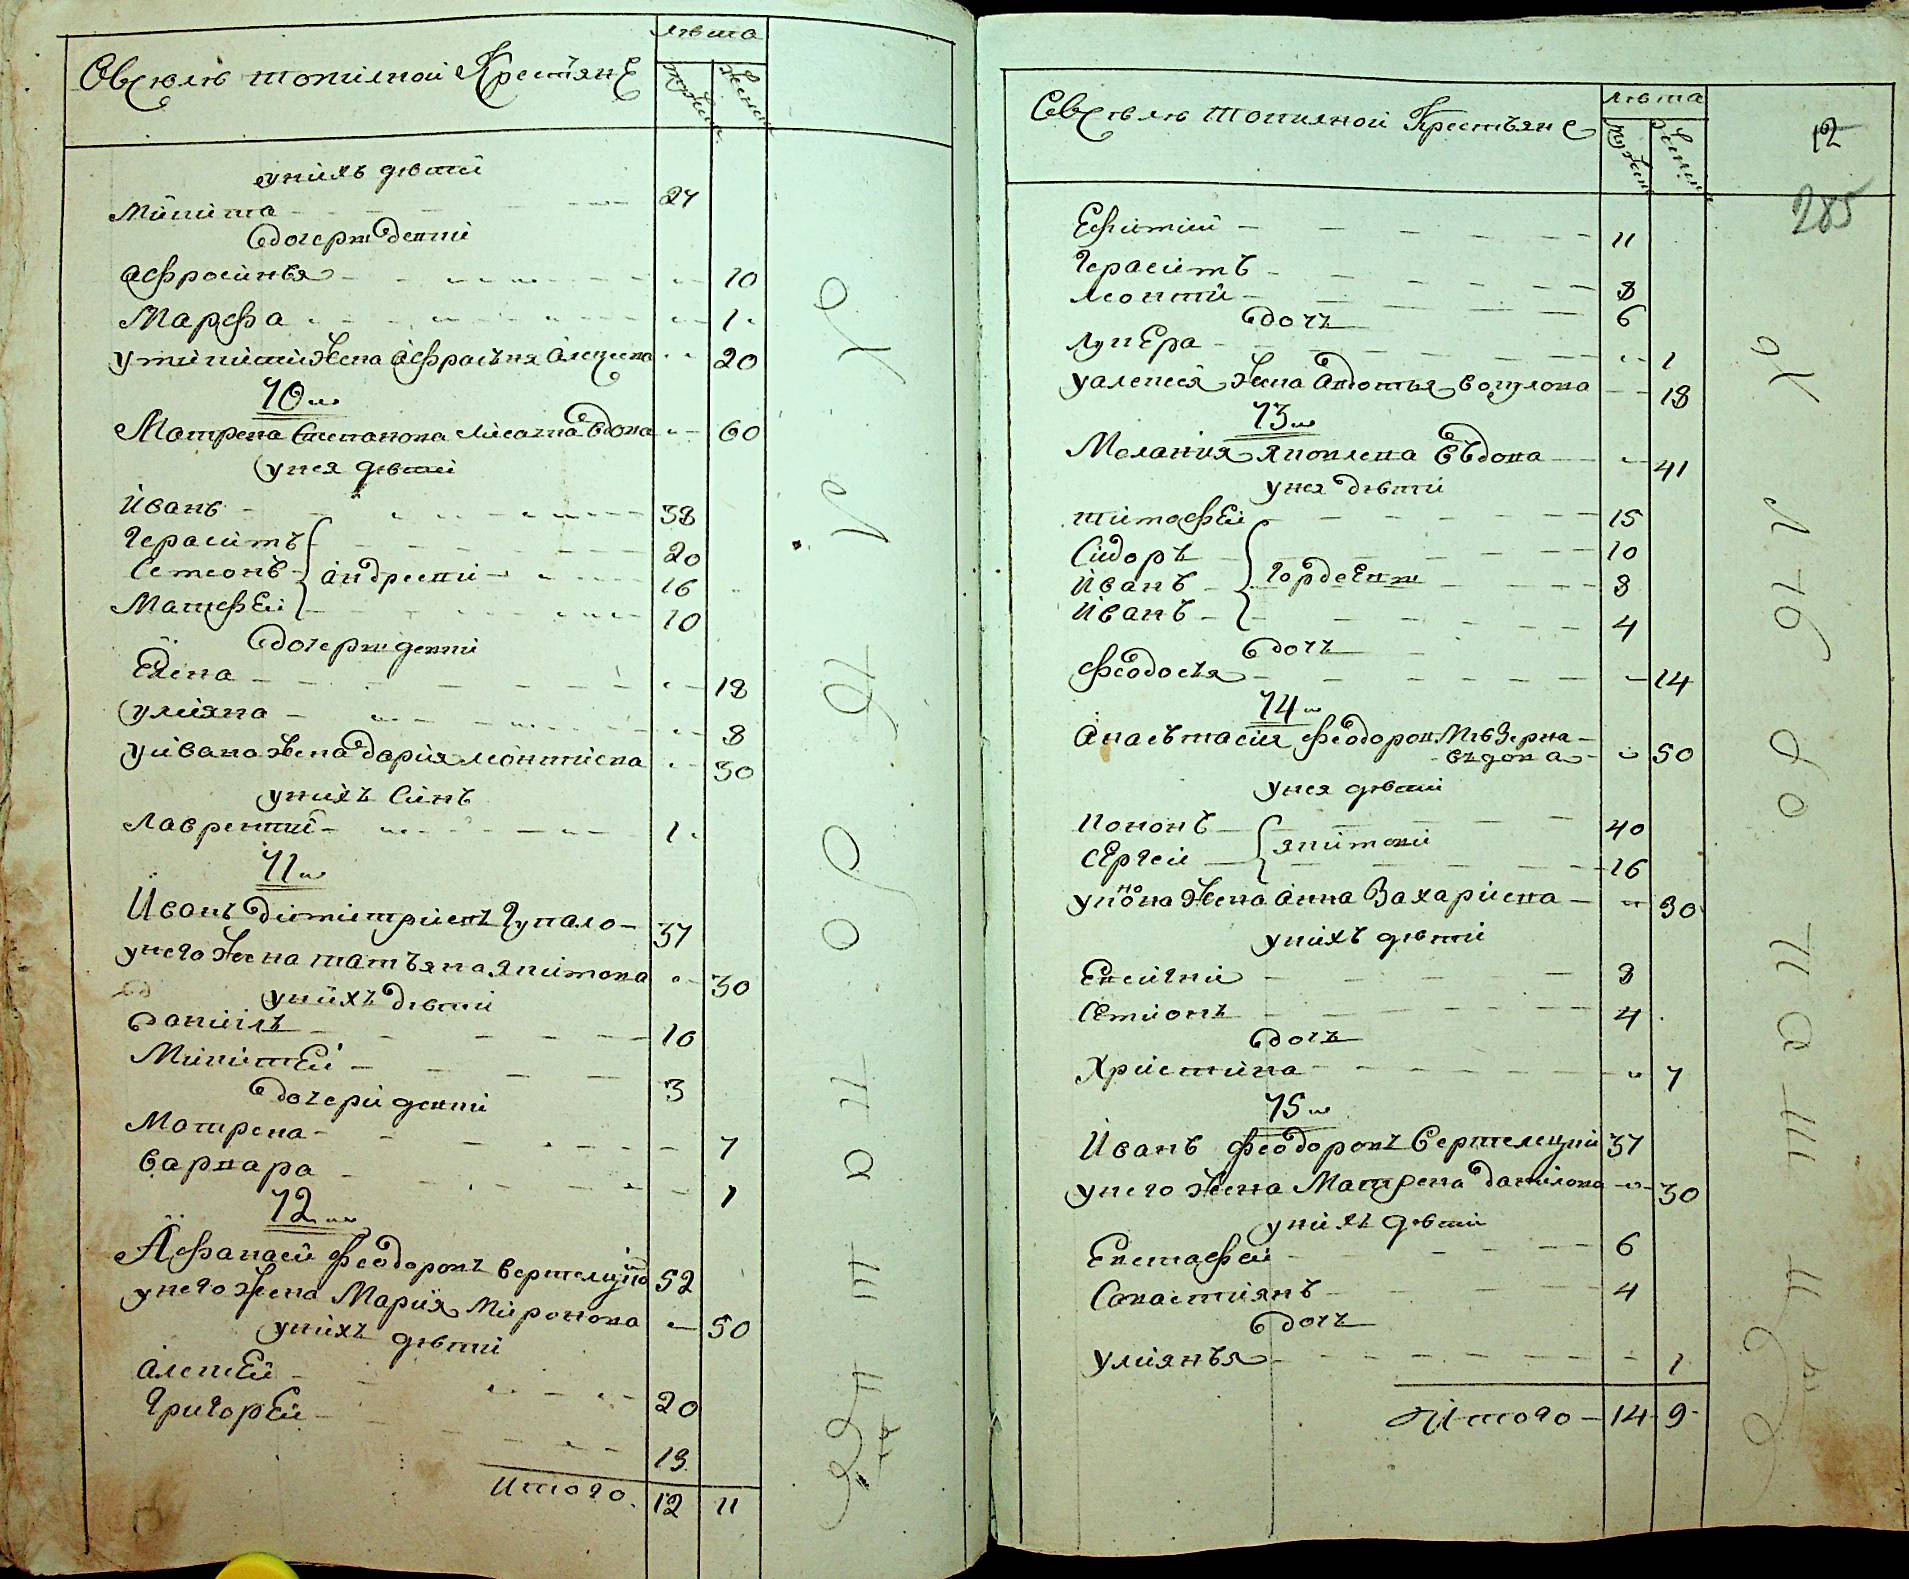 Вселѣ топилной Крестяне
лѣта
мужеск
женск
у нихъ дѣти
Микита 27
Дочери дѣти
Афросиня 10
Марфа 1
у Микити жена Афросиня Алецсеева 20
10
Матрена Степанова Лисата вдова 60
у нея дѣти
Иванъ 38
Герасимъ 20
Семеонъ Андрееви 16
Матфей 10
Дочери дети
Елена 18
Улияна 8
у Ивана жена Дария Леонтиева 30
у нихъ Синъ
Лаврентий 1
11
Иванъ Димитриевъ Гупало 37
у него жена Татъяна Якимова 30
у нихъ дѣти
Даниилъ 10
Микитей 3
Дочери дети
Матрена 7
Варвара 1
12
Афанасей Феодоровъ Вертелецкий 52
у него жена Мария Миронова 50
у нихъ дѣти
Алексей 20
Григорей 13
Итого 12 11
Вселѣ Топилной Крестъяне
лѣта
мужеск
женск
12
285
Ефимий 11
Герасимъ 8
Леонтий 6
Дочъ
Лукера 1
у Алексея жена Авдотья 18
13
Мелания Яковлева Вдова 41
у нея дѣти
Тимофей 15
Сидоръ 10
Иванъ Гордеевы 8
Иванъ 4
Дочъ
Феодосъя 14
14
Анастасия Феодоров
вдова 50
у нея дѣти
Кононъ 40
Сергей Якимови 16
у Конона жена Анна Захариева 30
у нихъ дѣти
Евсигний 8
Семионъ 4
Дочъ
Христина 7
15
Иванъ Феодоровъ Вертелецкий 37
у него жена Матрена Данилова 30
у нихъ дѣти
Евстафей 6
Савастиянъ 4
Дочъ
Улиянъя 1
Итого 14 9